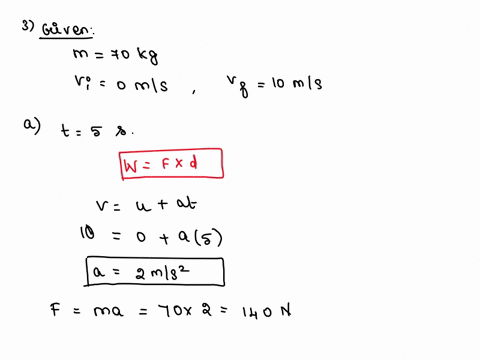 3) Given:
m = 70 kg
vi = 0 m/s , vf = 10 m/s
a) t = 5 s.
W = F x d
v = u + at
10 = 0 + a(5)
a = 2 m/s²
F = ma = 70 x 2 = 140 N